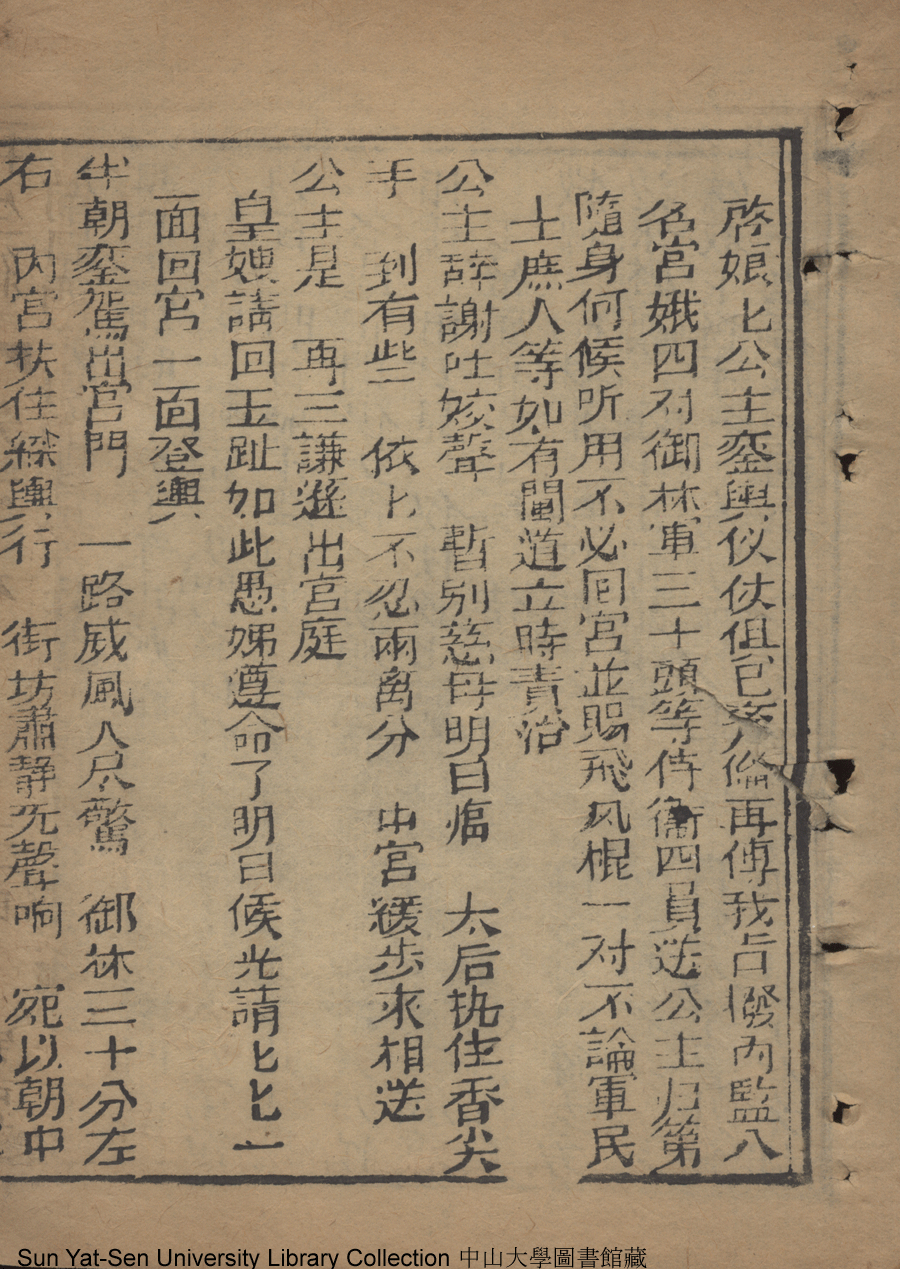 啓娘匕公主鑾輿仪仗俱已齊俻再傳我旨撥内監八
名宮娥四对御林軍三十頭等侍衛四員送公主归第
隨身何候听用不必回宮並賜飛风棍一对不論軍民
士庶人等如有闖道立時責治
公主辞謝吐娇聲 暫别慈母明日临 太后执住香尖
手 到有些 依匕不忍兩离分 中宮緩步來相送
公主是 再三謙遜出宮庭
皇嫂請回玉趾如此愚姊遵命了明日候光請匕匕一
面回宮一面登輿
半朝鑾駕出宮門 一路威風人尽驚 御林三十分左
右 内宮扶住綵輿行 街坊肅静旡聲响 宛以朝中
Sun Yat-Sen University Library Collection 中山大學圖書館藏